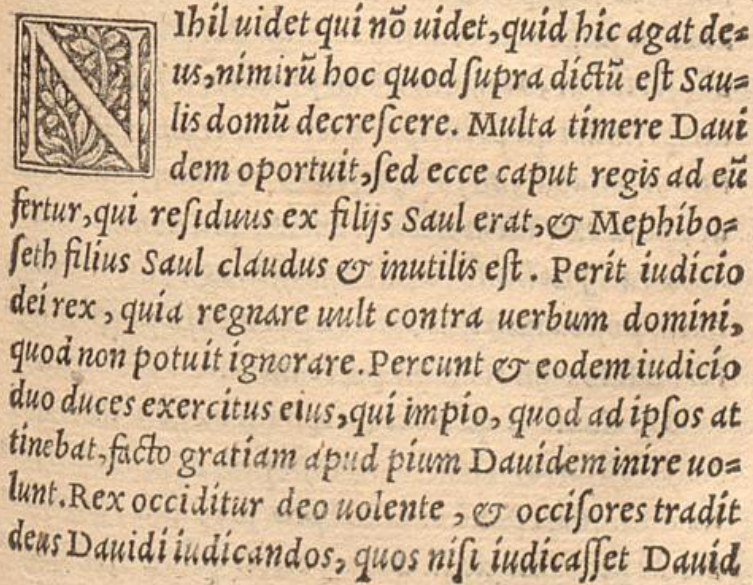 NIhil uidet qui nõ uidet, quid hic agat de=
us, nimirũ hoc quod ſupra dictũ eſt Sau=
lis domũ decreſcere. Multa timere Daui
dem oportuit, ſed ecce caput regis ad eũ
fertur, qui reſiduus ex filijs Saul erat, & Mephibo=
ſeth filius Saul claudus & inutilis eſt. Perit iudicio
dei rex, quia regnare uult contra uerbum domini,
quod non potuit ignorare. Pereunt & eodem iudicio
duo duces exercitus eius, qui impio, quod ad ipſos at
tinebat, facto gratiam apud pium Dauidem inire uo=
lunt. Rex occiditur deo uolente, & occiſores tradit
deus Dauidi iudicandos, quos niſi iudicaſſet Dauid